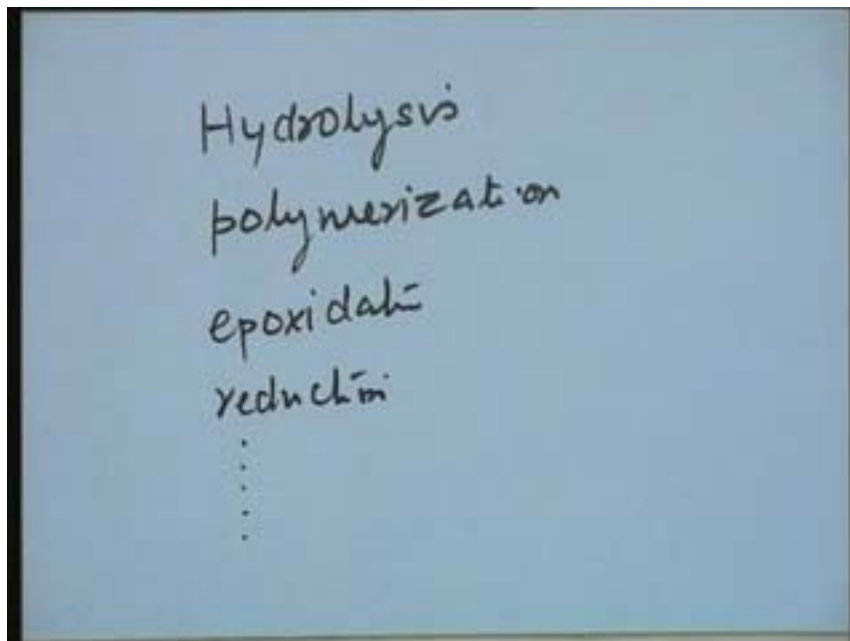 Hydrolysis
polymerization
epoxidatn
reduction
.
.
.
.
.